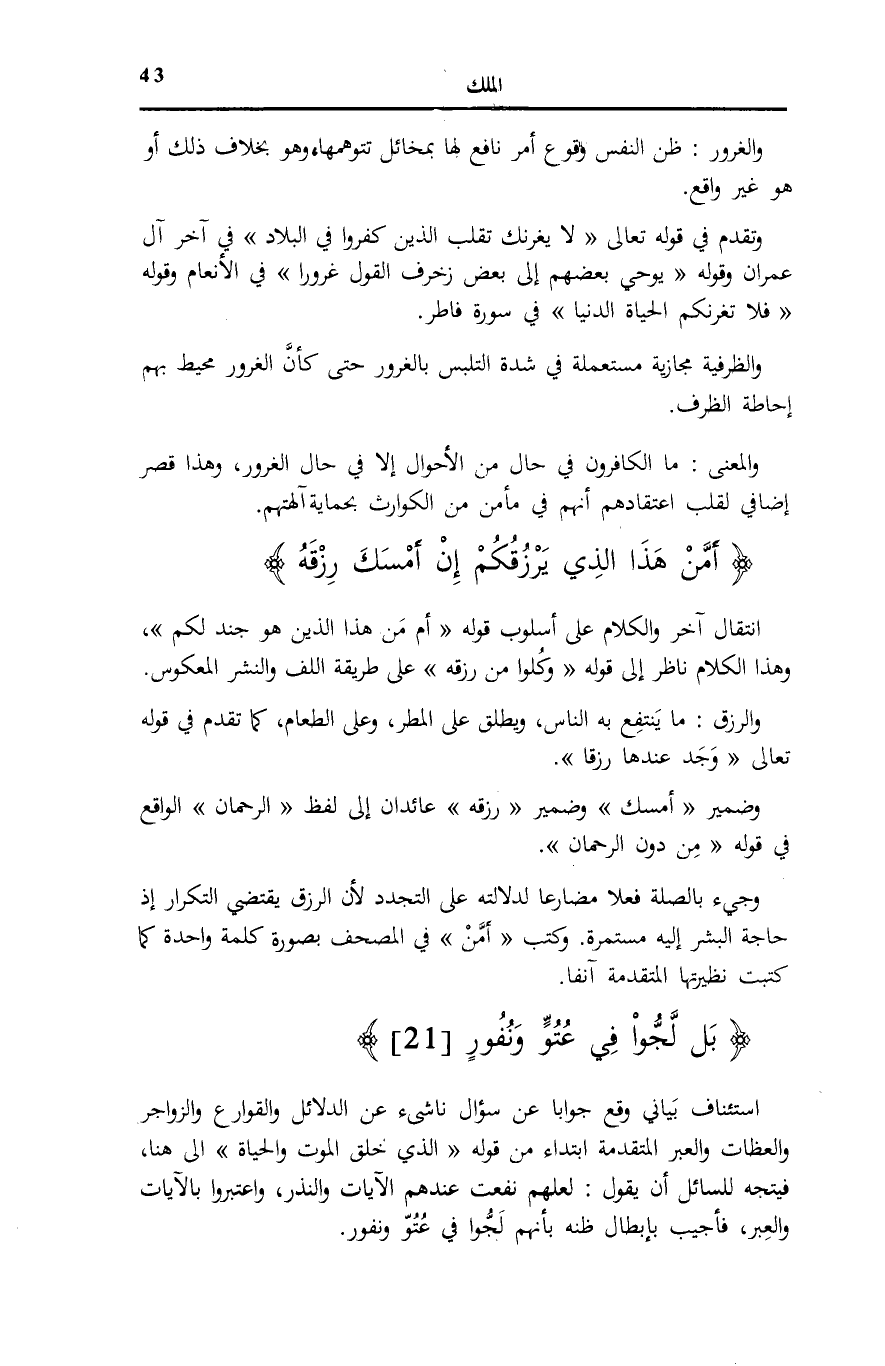 43
الملك
والغرور : ظن النفس وقوع أمر نافع لها بمخائل تتوهمها،وهو بخلاف ذلك أو
هو غير واقع.
وتقدم في قوله تعالى « لا يغرنك تقلب الذين كفروا في البلاد » في آخر آل
عمران وقوله « يوحي بعضهم إلى بعض زخرف القول غرورا » في الأنعام وقوله
« فلا تغرنكم الحياة الدنيا » في سورة فاطر.
والظرفية مجازية مستعملة في شدة التلبس بالغرور حتى كأنَّ الغرور محيط بهم
إحاطة الظرف.
والمعنى : ما الكافرون في حال من الأحوال إلا في حال الغرور، وهذا قصر
إضافي لقلب اعتقادهم أنهم في مأمن من الكوارث بحماية آلهتهم.
﴿ أَمَّنْ هَذَا الذِي يَرْزُقُكُمْ إِنْ أَمْسَكَ رِزْقَهُ ﴾
انتقال آخر والكلام على أسلوب قوله « أم مَن هذا الذين هو جند لكم »،
وهذا الكلام ناظر إلى قوله « وكُلوا من رزقه » على طريقة اللف والنشر المعكوس.
والرزق : ما يَنتفِع به الناس، ويطلق على المطر، وعلى الطعام، كما تقدم في قوله
تعالى « وَجَد عندها رزقا ».
وضمير « أمسك » وضمير « رزقه » عائدان إلى لفظ « الرحمان » الواقع
في قوله « مِن دون الرحمان ».
وجيء بالصلة فعلا مضارعا لدلالته على التجدد لأن الرزق يقتضي التكرار إذ
حاجة البشر إليه مستمرة. وكتب « أمَّنْ » في المصحف بصورة كلمة واحدة كما
كتبت نظيرتها المتقدمة آنفا.
﴿ بَل لَّجُّواْ فِي عُتُوٍّ وَنُفُورٍ [21] ﴾
استئناف بَياني وقع جوابا عن سؤال ناشىء عن الدلائل والقوارع والزواجر
والعظات والعبر المتقدمة ابتداء من قوله « الذي خلق الموت والحياة » الى هنا،
فيتجه للسائل أن يقول : لعلهم نفعت عندهم الآيات والنذر، واعتبروا بالآيات
والعِبر، فأجيب بإبطال ظنه بأنهم لَجُّوا في عُتُوّ ونفور.